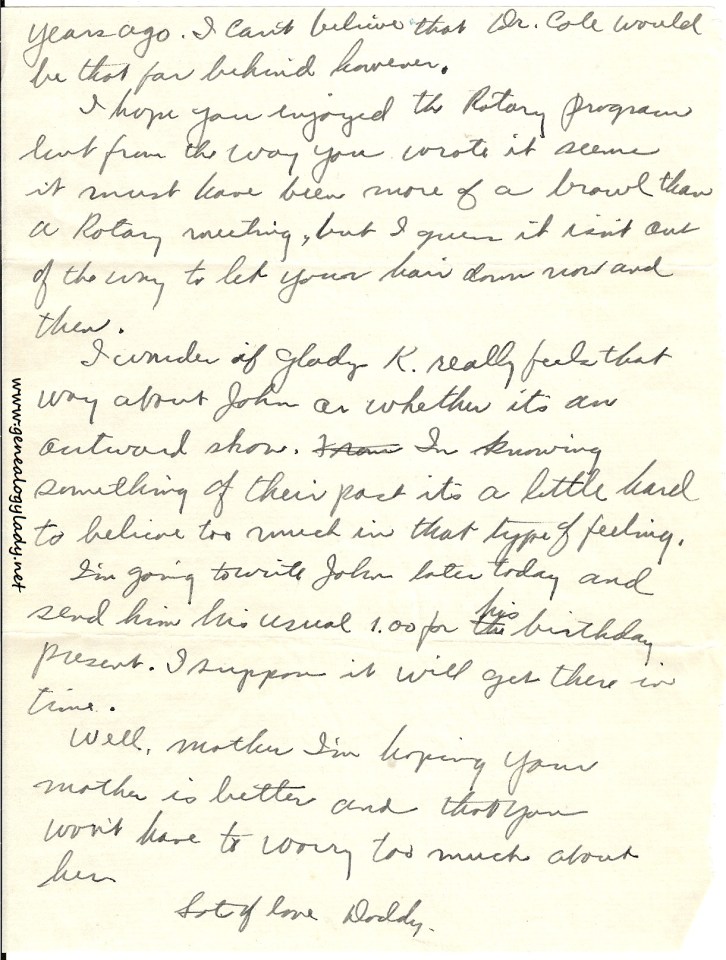 years ago. I can't believe that Dr. Cole would
be that far behind however.
I hope you enjoyed the Rotary program
but from the way you wrote it seems
it must have been more of a brawl than
a Rotary meeting, but I guess it isn't out
of the way to let your hair down now and
then.
I wonder if Gladys K. really feels that
way about John or whether its an
outward show. From In knowing
something of their past its a little hard
to believe too much in that type of feeling.
I'm going to write John later today and
send him his usual 1.00 for the his birthday
present. I suppose it will get there in
time.
Well, mother I'm hoping your
mother is better and that you
won't have to worry too much about
her
Lots of love Daddy.
www.genealogylady.net